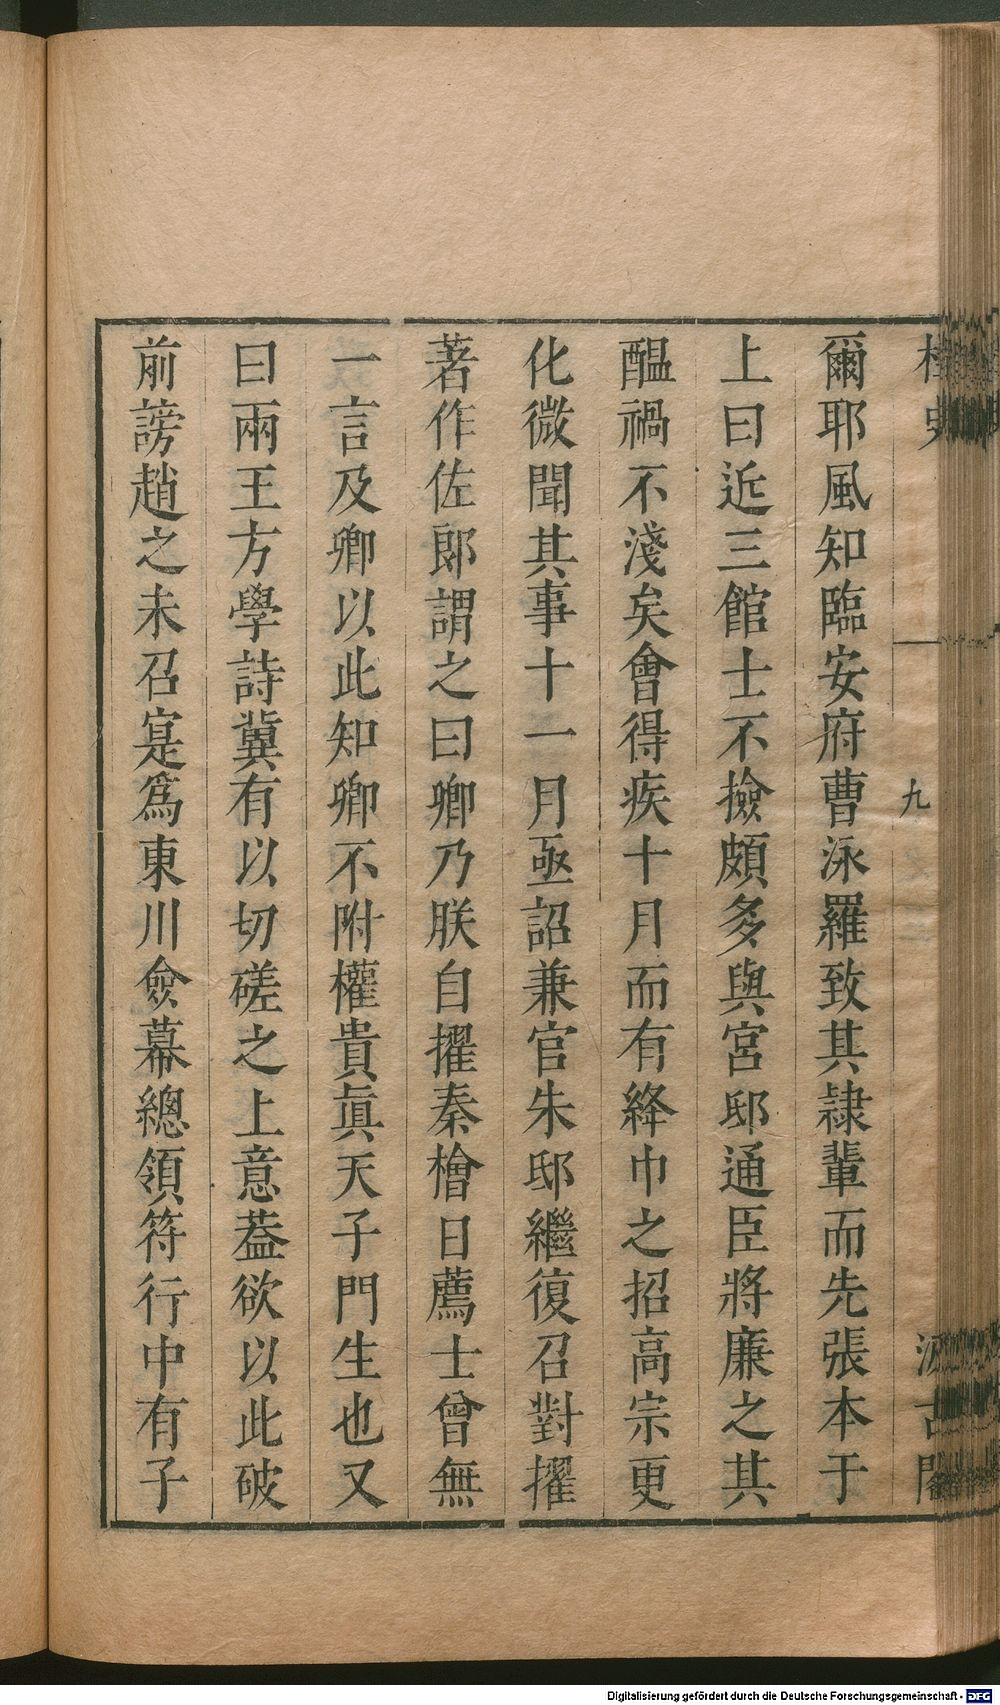 桯史
九
汲古閣
爾耶風知臨安府曹泳羅致其隷輩而先張本于
上曰近三館士不撿頗多與宮邸通臣將廉之其
醖禍不淺矣會得疾十月而有絳巾之招高宗更
化微聞其事十一月亟詔兼官朱邸繼復召對擢
著作佐郎謂之曰卿乃朕自擢秦檜日薦士曾無
一言及卿以此知卿不附權貴眞天子門生也又
曰兩王方學詩冀有以切磋之上意葢欲以此破
前謗趙之未召寔爲東川僉幕總領符行中有子
Digitalisierung gefördert durch die Deutsche Forschungsgemeinschaft - DFG